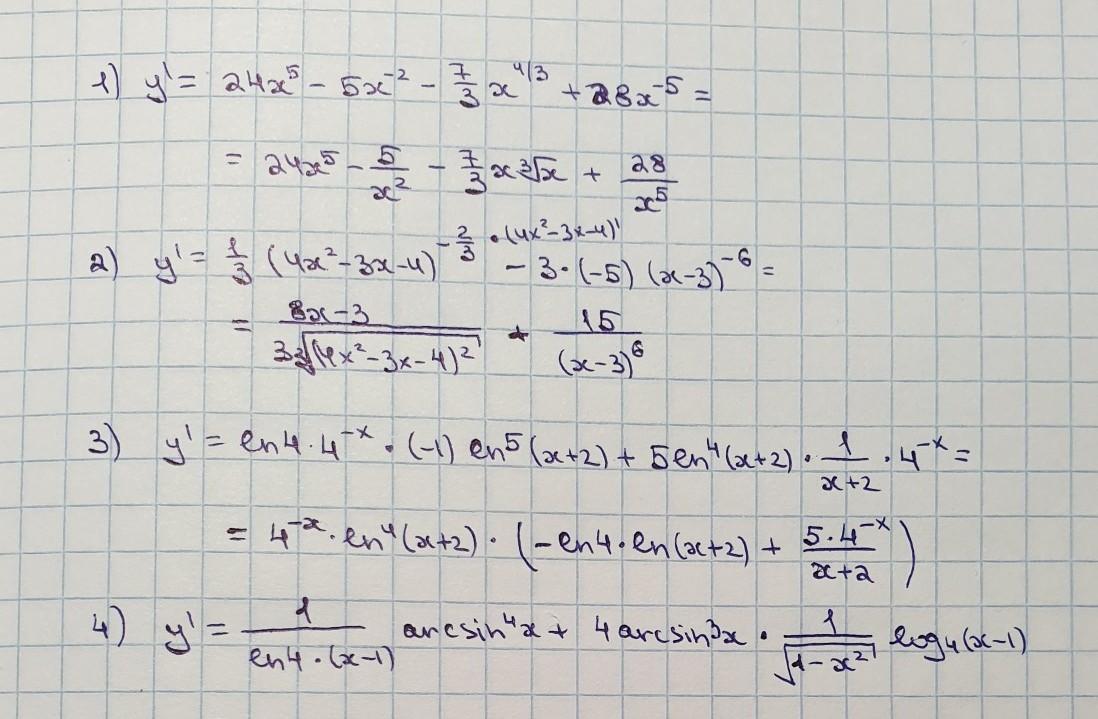 1) y' = 24x⁵ - 5x⁻² - 7/3 x^(4/3) + 28x⁻⁵ =
= 24x⁵ - 5/x² - 7/3 x ∛x + 28/x⁵
2) y' = 1/3 (4x² - 3x - 4)^(-2/3) · (4x² - 3x - 4)' - 3 · (-5) (x - 3)⁻⁶ =
= (8x - 3)/(3 ∛((4x² - 3x - 4)²)) + 15/(x - 3)⁶
3) y' = ln4 · 4⁻ˣ · (-1) ln⁵(x+2) + 5ln⁴(x+2) · 1/(x+2) · 4⁻ˣ =
= 4⁻ˣ · ln⁴(x+2) · (-ln4 · ln(x+2) + (5 · 4⁻ˣ)/(x+2))
4) y' = 1/(ln4 · (x-1)) arcsin⁴x + 4 arcsin³x · 1/√(1-x²) log₄(x-1)